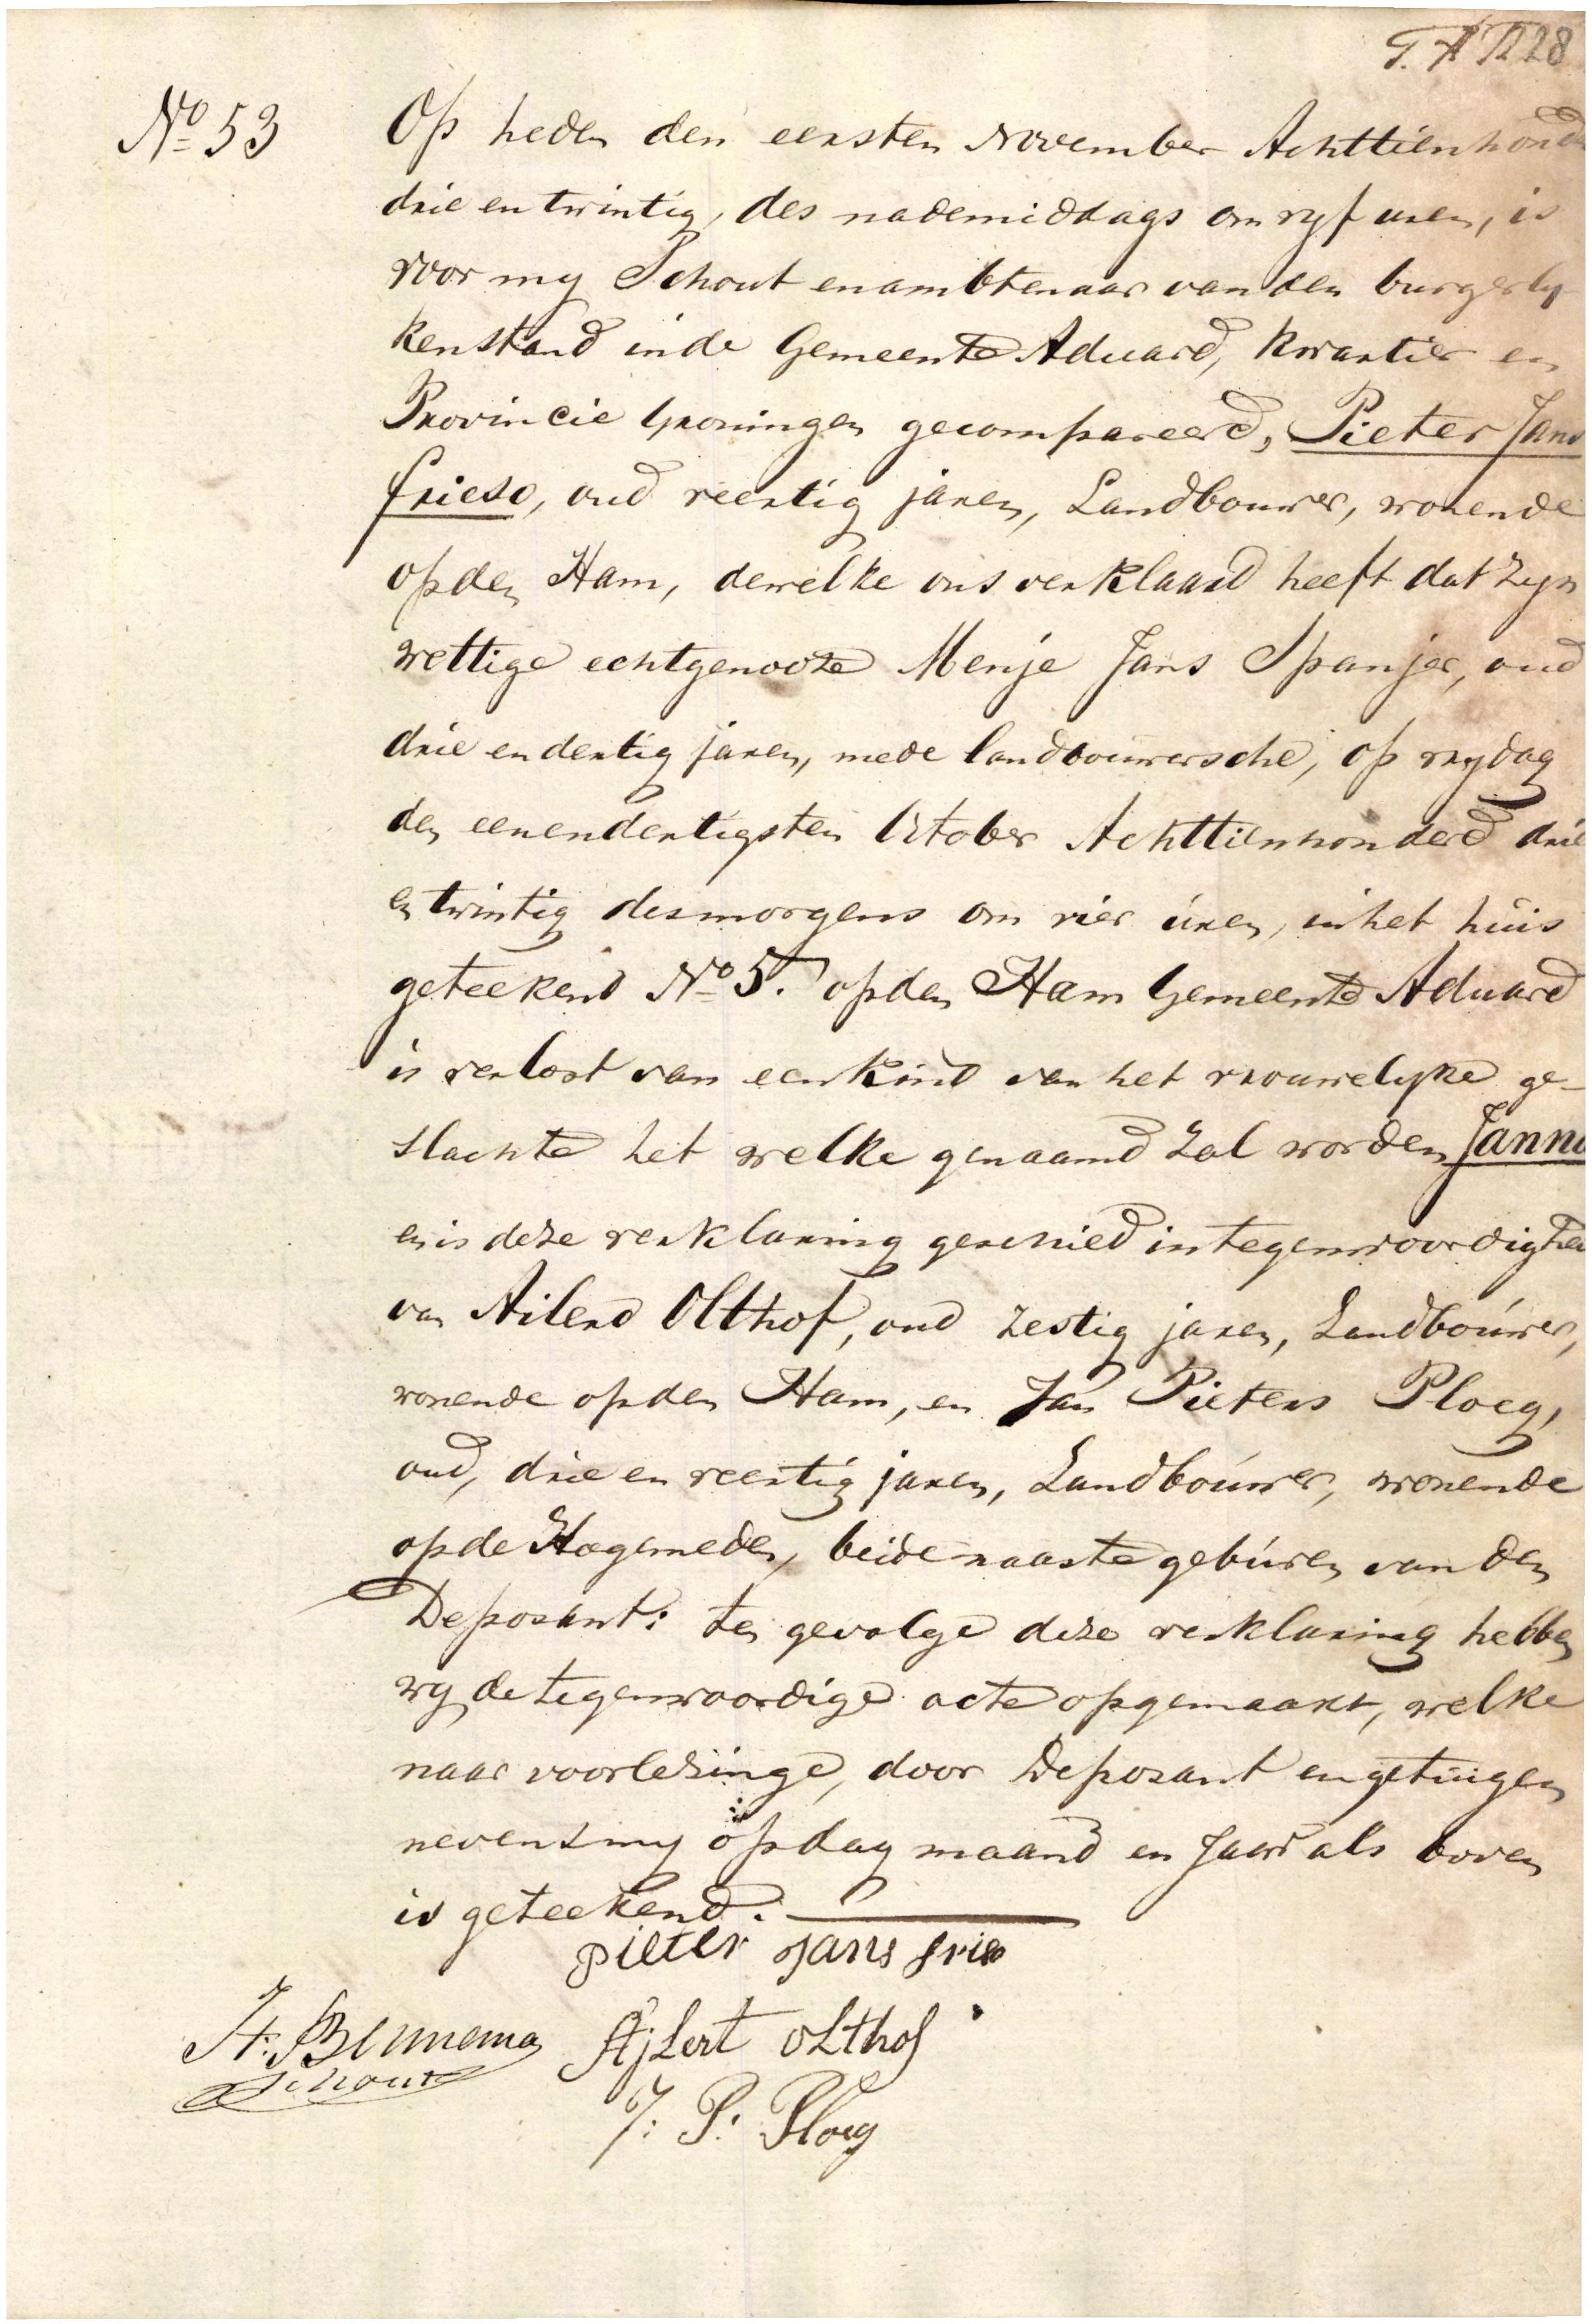 No 53
Op heden den eersten November Achttienhond
drie en twintig, des nademiddags om vyf uren, is
voor my Schout en ambtenaar van den burgerly
kenstand in de Gemeente Aduard, Kwartier en
Provincie Groningen gecompareerd, Pieter Jans
frieso, oud veertig jaren, Landbouwer, wonende
op den Ham, dewelke ons verklaard heeft dat zyn
wettige echtgenoote Menje Jans Spanjer, oud
drie en dertig jaren, mede landbouwersche, op vrydag
den eenendertigsten October Achttienhonderd drie
en twintig des morgens om vier uren, in het huis
geteekend No 5. op den Ham Gemeente Aduard
is verlost van een Kind van het vrouwelyke ge-
slachte het welke genaamd zal worden Janna
en is deze verklaring geschied in tegenwoordighei
van Ailerd Olthof, oud zestig jaren, Landbouwer,
wonende op den Ham, en Jan Pieters Ploeg,
oud, drie en veertig jaren, Landbouwer, wonende
op de Hogemeden, beide naaste geburen van den
Deposant: ten gevolge deze verklaring hebben
wy de tegenwoordige acte opgemaakt, welke
naar voorlezinge, door Deposant en getuigen
nevens my op dag maand en Jaar als boven
is geteekend.
pieter Jans frieso
H: Bennema Ajlert olthof
Schout
J: P: Ploeg